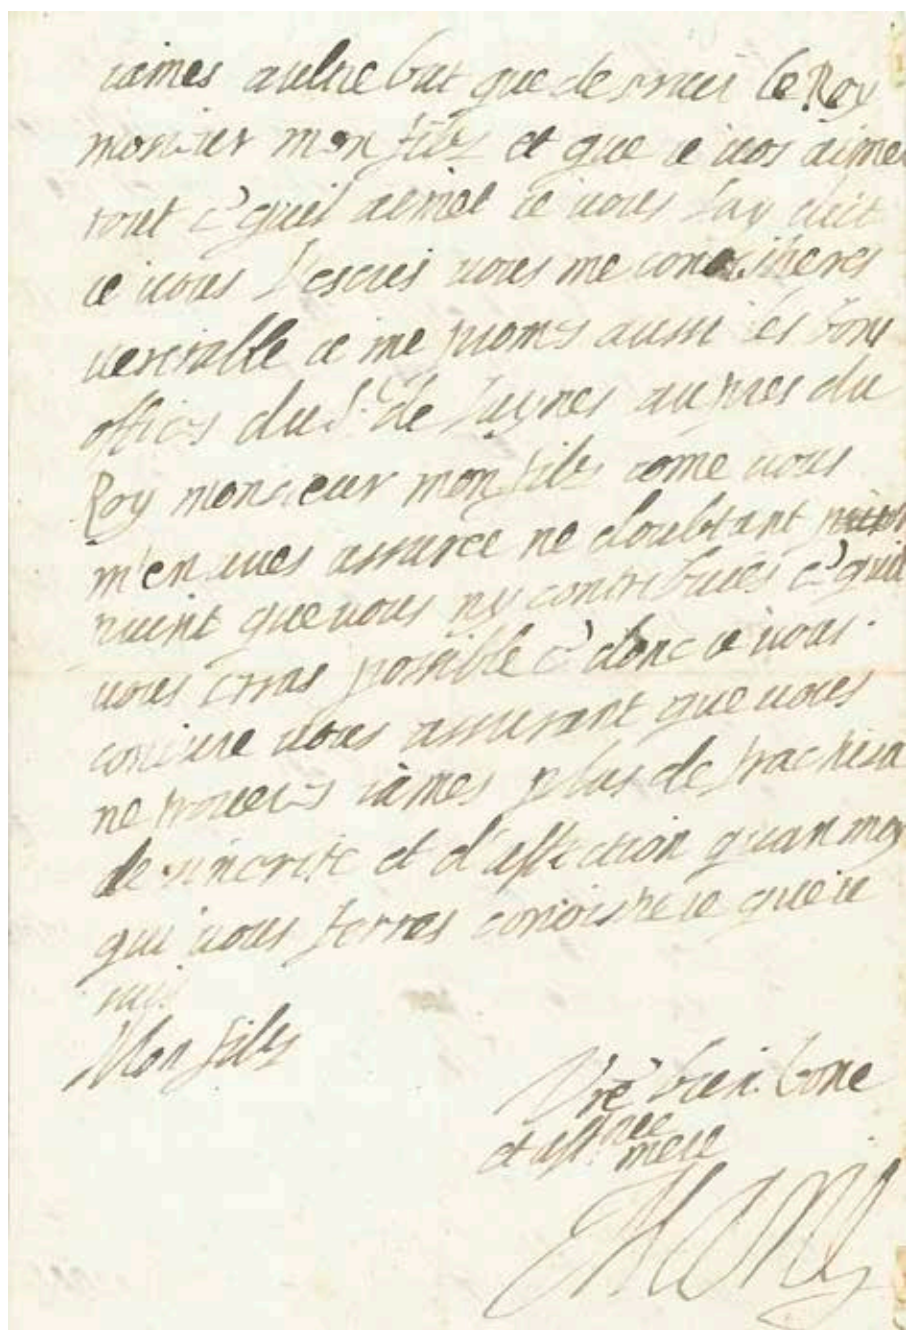 iames aultre but que de s le Roy
monsieur mon filz et que ie vos aime
tout c̃ quil aimet ie vous lay dict
ie vous l'escris vous me conoistreres
veritable ie me promes aussi les bons
offices du S.r de Luynes aupres du
Roy monsieur mon filz come vous
m'en aves assuree ne doubtant
point que vous ny contribuies c̃ quil
vous seras possible c̃ donc ie vous
coniure vous assurant que vous
ne troveres iames plus de franchise
de sincerite et d'affection quan moy
qui vous ferres conoistre ie que ie
suis
Mon filz
Vre bien bone
et affnee mere
Marie